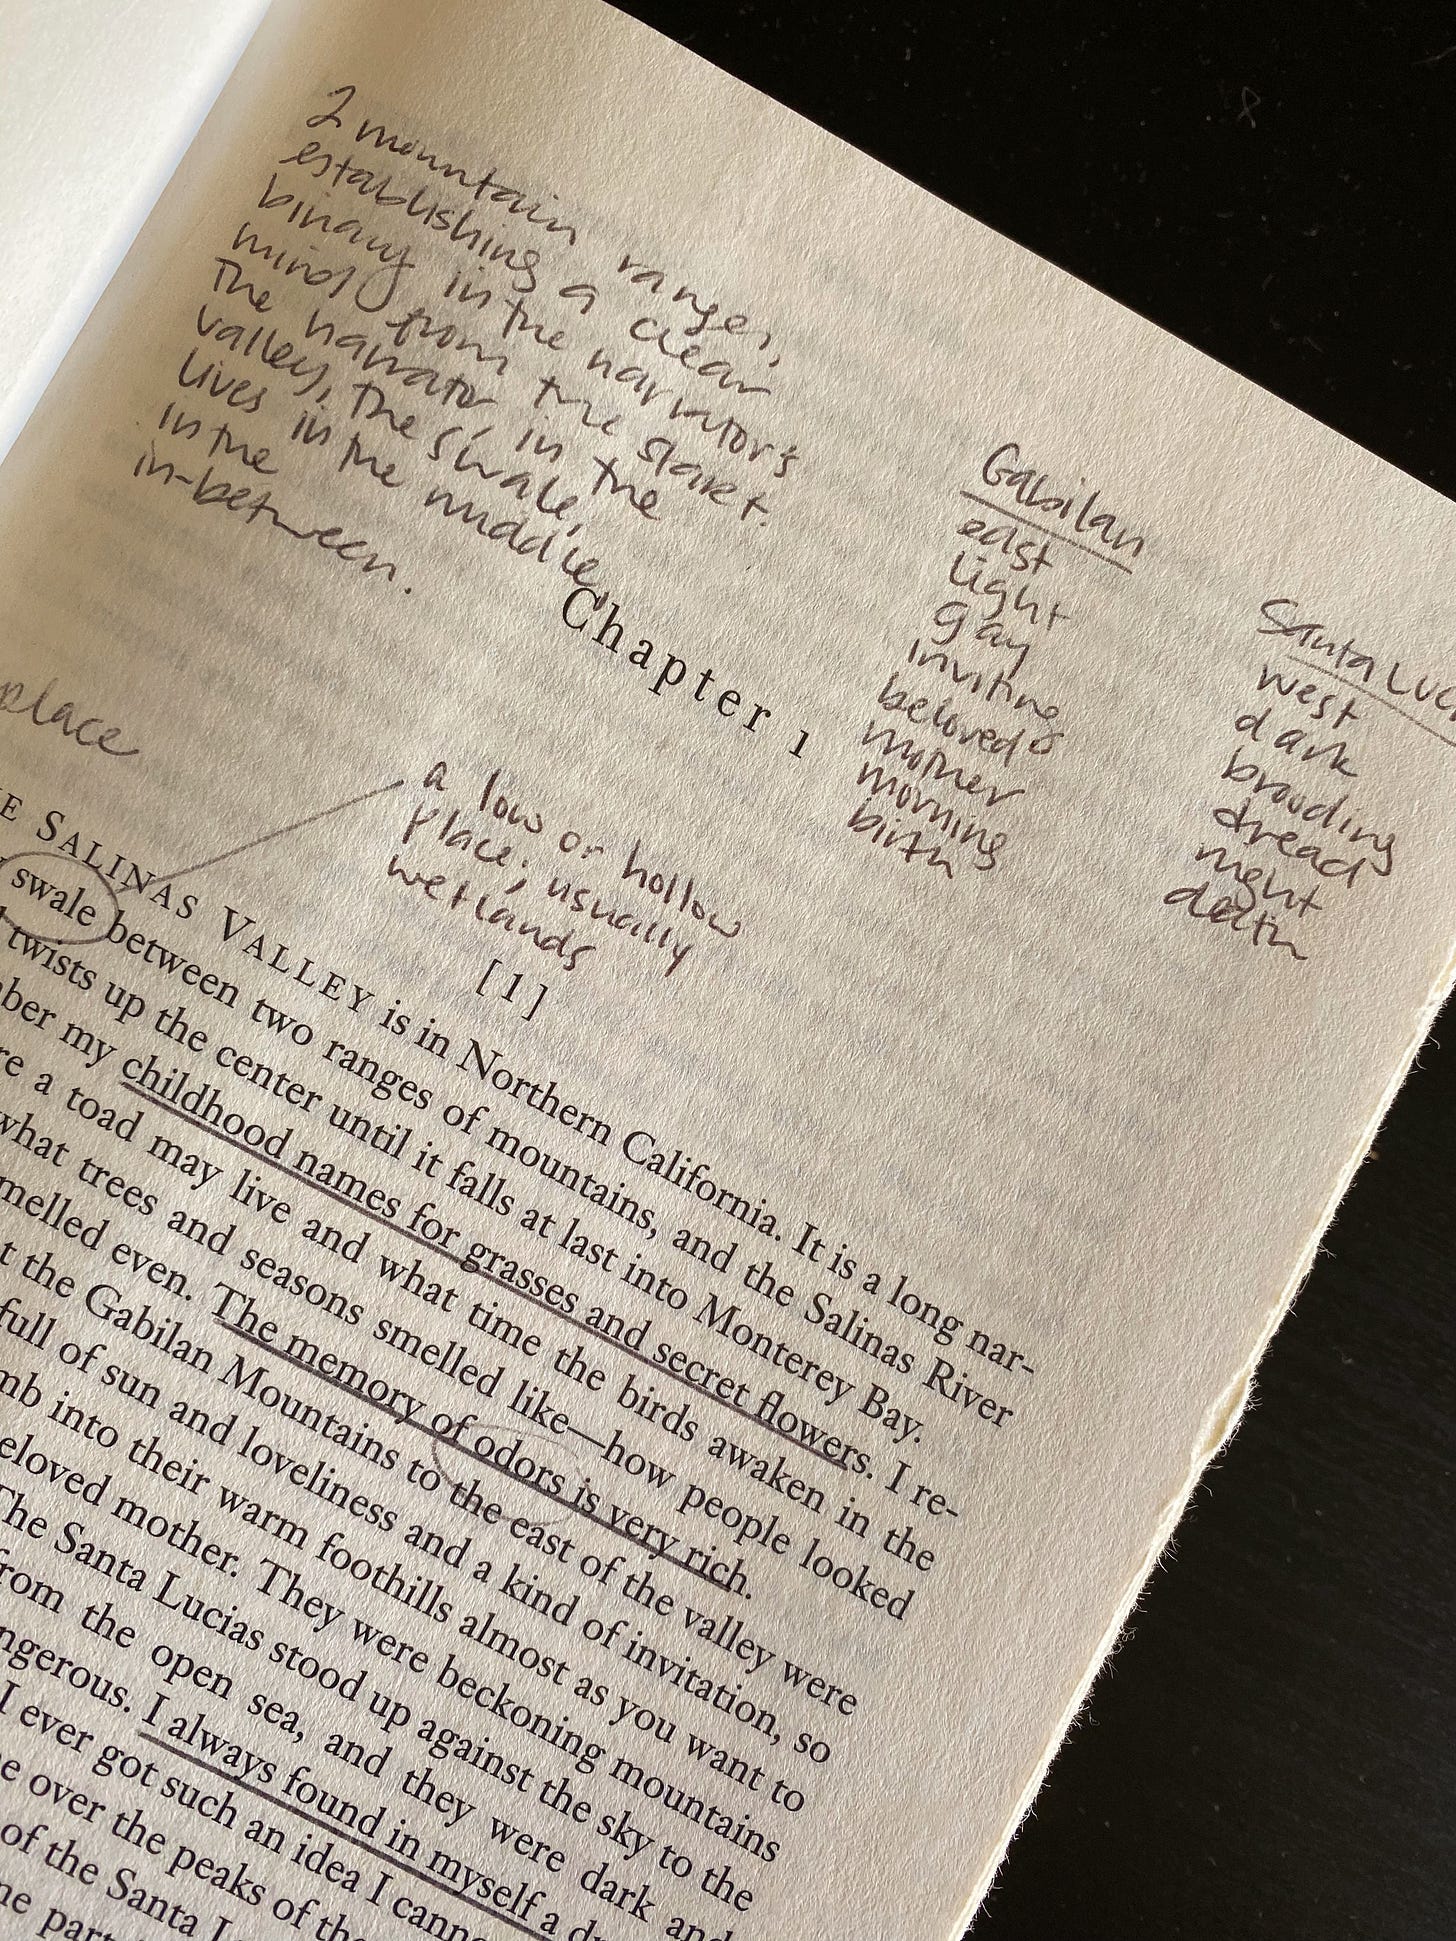 2 mountain ranges,
establishing a clear
binary in the narrator's
mind from the start.
The narrator, in the
valley, the swale,
lives in the middle,
in the
in-between.
Gabilan
east
light
gay
inviting
beloved
mother
morning
birth
Santa Luci
west
dark
brooding
dread
night
death
Chapter 1
place
a low or hollow
place; usually
wetlands
[1]
E SALINAS VALLEY is in Northern California. It is a long nar-
swale between two ranges of mountains, and the Salinas River
twists up the center until it falls at last into Monterey Bay.
ber my childhood names for grasses and secret flowers. I re-
re a toad may live and what time the birds awaken in the
what trees and seasons smelled like—how people looked
melled even. The memory of odors is very rich.
t the Gabilan Mountains to the east of the valley were
full of sun and loveliness and a kind of invitation, so
mb into their warm foothills almost as you want to
eloved mother. They were beckoning mountains
The Santa Lucias stood up against the sky to the
from the open sea, and they were dark and
ngerous. I always found in myself a d
I ever got such an idea I cann
e over the peaks of th
of the Santa L
ne part